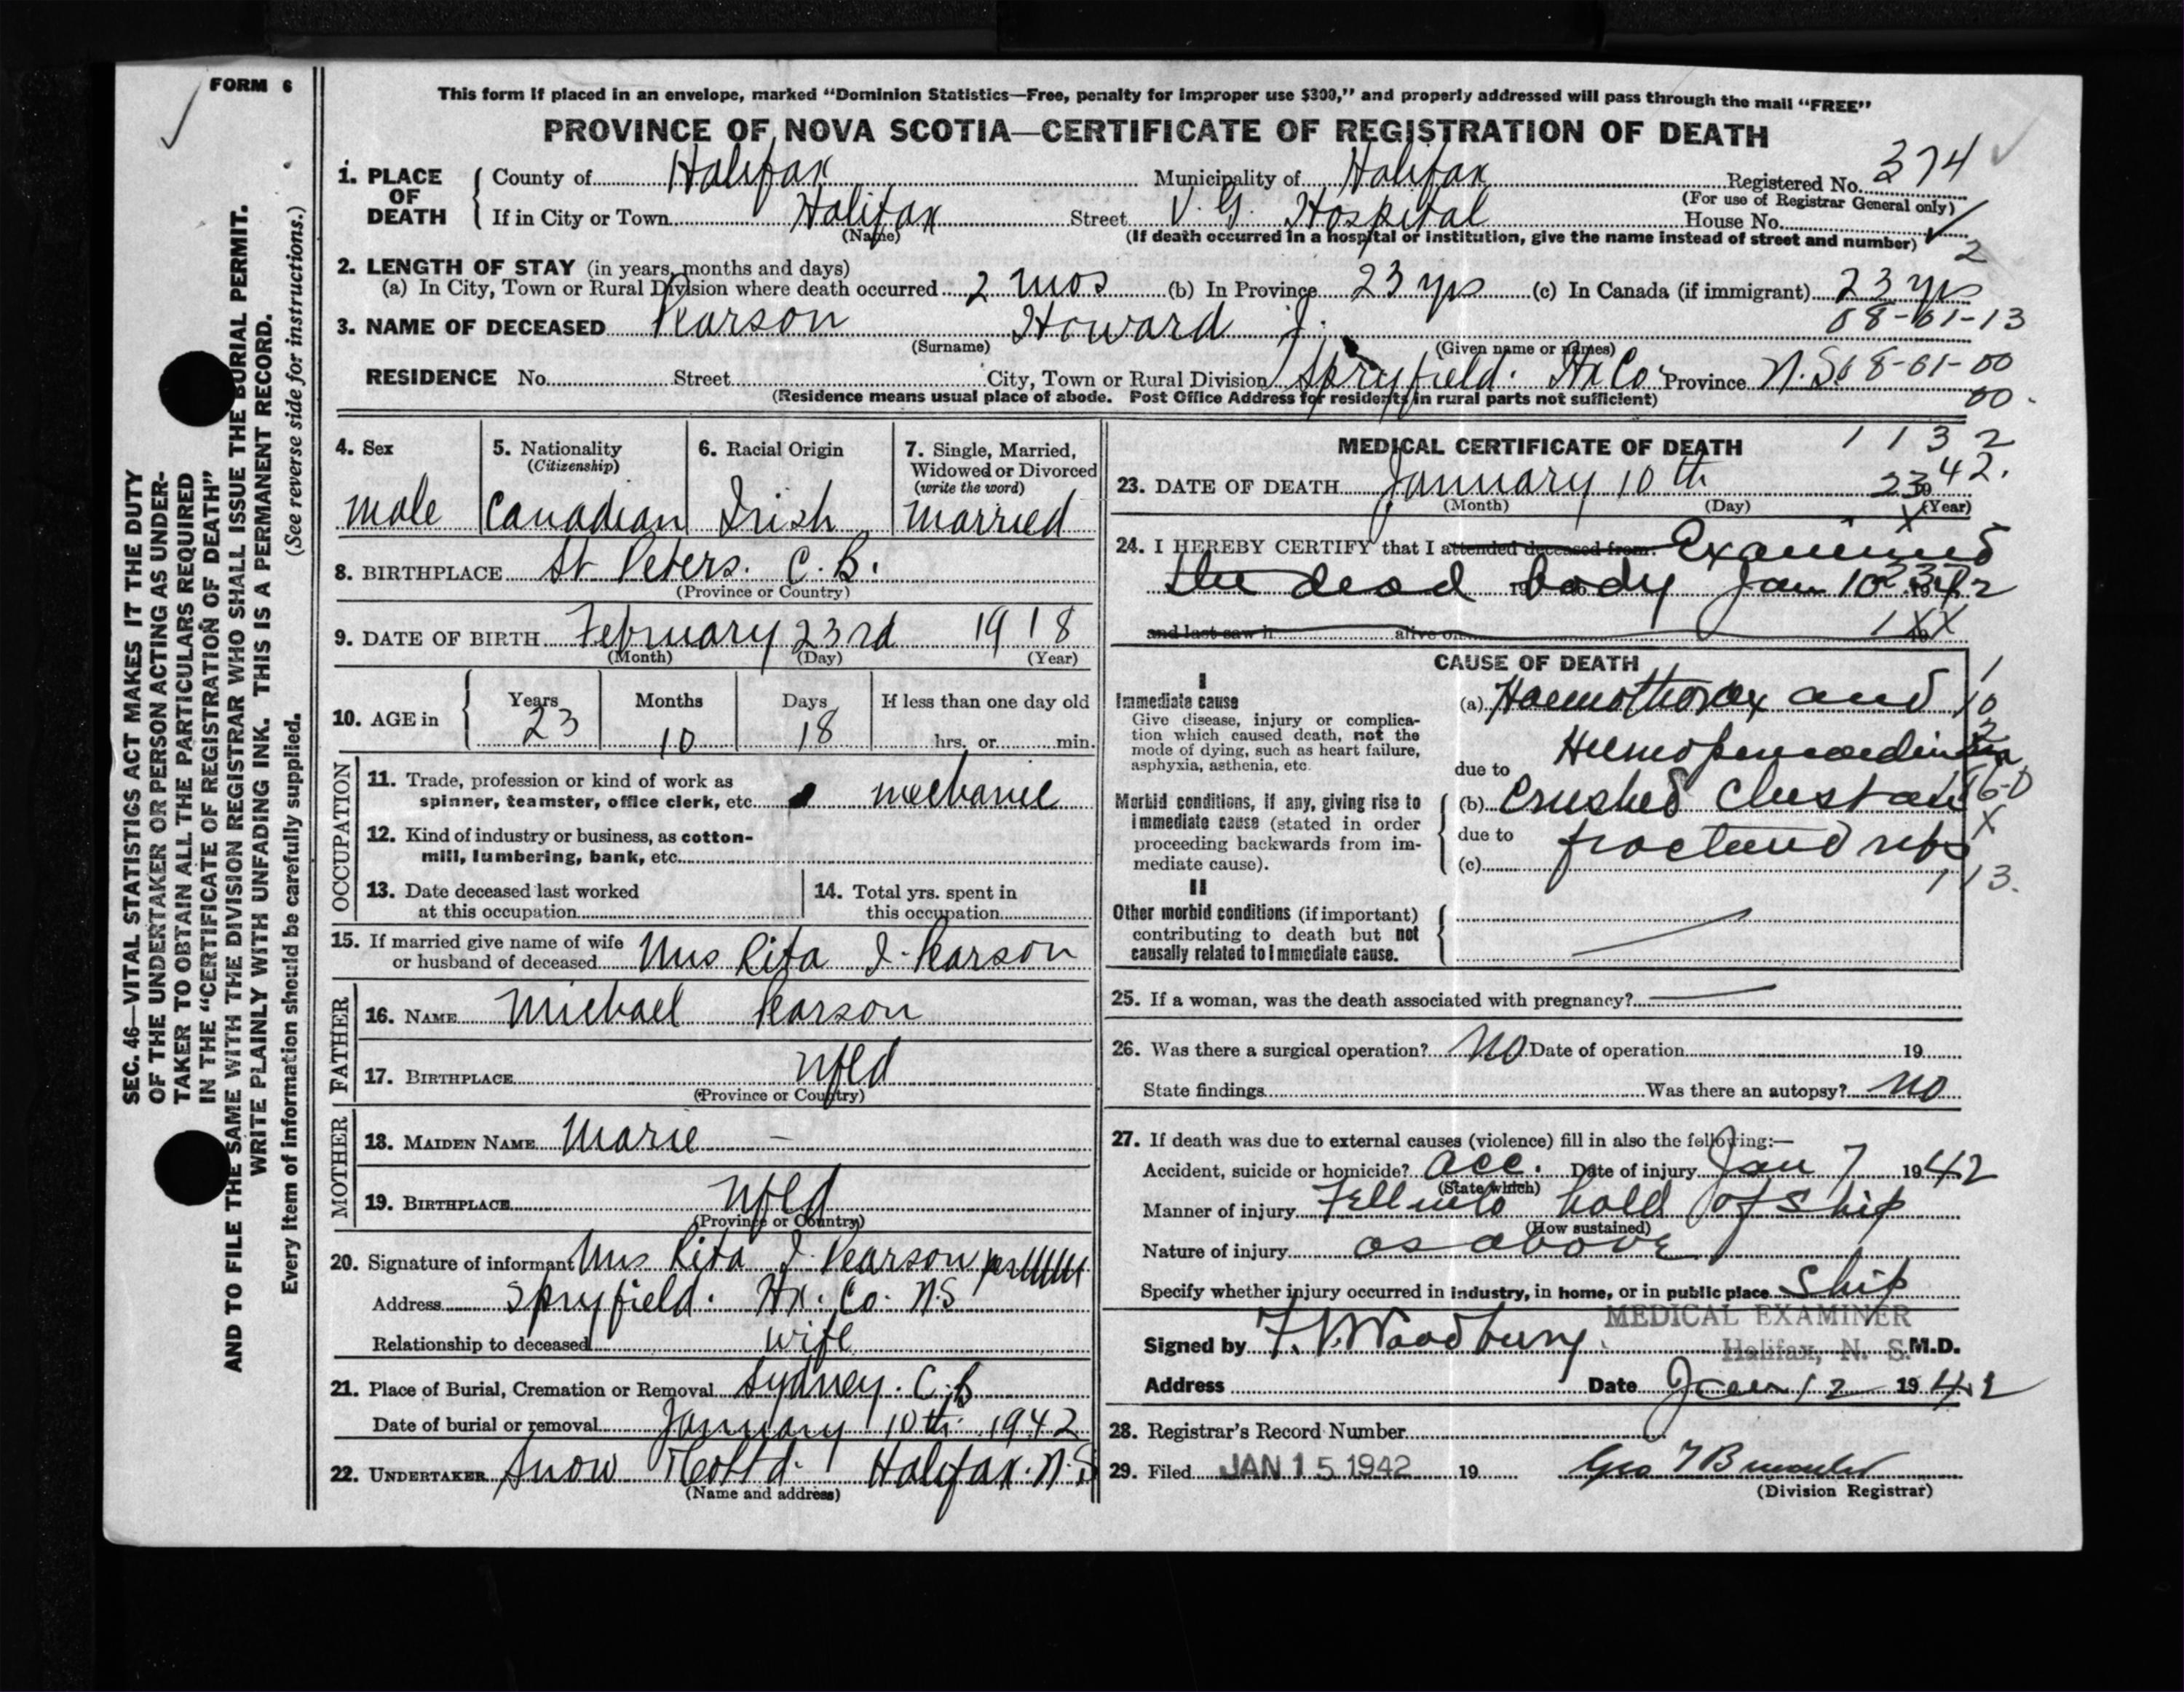 FORM 6
This form if placed in an envelope, marked "Dominion Statistics—Free, penalty for improper use $300," and properly addressed will pass through the mail "FREE"
PROVINCE OF NOVA SCOTIA—CERTIFICATE OF REGISTRATION OF DEATH
1. PLACE OF DEATH County of Halifax Municipality of Halifax Registered No. 374
(For use of Registrar General only)
If in City or Town Halifax Street V. G. Hospital House No.
(Name) (If death occurred in a hospital or institution, give the name instead of street and number)
2
2. LENGTH OF STAY (in years, months and days)
(a) In City, Town or Rural Division where death occurred 2 mos (b) In Province 23 yrs (c) In Canada (if immigrant) 23 yrs
08-61-13
3. NAME OF DECEASED Pearson Howard J.
(Surname) (Given name or names)
RESIDENCE No. Street City, Town or Rural Division Spryfield. Hx Co Province N.S. 08-61-00
(Residence means usual place of abode. Post Office Address for residents in rural parts not sufficient)
00
4. Sex 5. Nationality (Citizenship) 6. Racial Origin 7. Single, Married, Widowed or Divorced (write the word)
male Canadian Irish married
8. BIRTHPLACE St Peters. C. B.
(Province or Country)
9. DATE OF BIRTH February 23rd 1918
(Month) (Day) (Year)
10. AGE in Years Months Days If less than one day old
23 10 18 hrs. or min.
OCCUPATION
11. Trade, profession or kind of work as spinner, teamster, office clerk, etc. mechanic
12. Kind of industry or business, as cotton-mill, lumbering, bank, etc.
13. Date deceased last worked at this occupation
14. Total yrs. spent in this occupation
15. If married give name of wife or husband of deceased Mrs Rita J. Pearson
FATHER
16. NAME Michael Pearson
17. BIRTHPLACE Nfld
(Province or Country)
MOTHER
18. MAIDEN NAME Marie —
19. BIRTHPLACE Nfld
(Province or Country)
20. Signature of informant Mrs Rita J. Pearson
Address Spryfield. Hx. Co. N.S
Relationship to deceased wife
21. Place of Burial, Cremation or Removal Sydney. C. B
Date of burial or removal January 10th 1942
22. UNDERTAKER Snow & Co Ltd. Halifax. N.S
(Name and address)
MEDICAL CERTIFICATE OF DEATH
1 1 3 2
23. DATE OF DEATH January 10th 1942.
(Month) (Day) (Year)
24. I HEREBY CERTIFY that I attended deceased from: Examined
the dead body Jan 10 1942
and last saw h alive on 19
CAUSE OF DEATH
I
Immediate cause
Give disease, injury or complication which caused death, not the mode of dying, such as heart failure, asphyxia, asthenia, etc.
(a) Haemothorax and
due to
Morbid conditions, if any, giving rise to immediate cause (stated in order proceeding backwards from immediate cause).
(b) Crushed Chest and
due to fractured ribs
(c)
II
Other morbid conditions (if important) contributing to death but not causally related to immediate cause.
25. If a woman, was the death associated with pregnancy? —
26. Was there a surgical operation? No Date of operation 19
State findings Was there an autopsy? No
27. If death was due to external causes (violence) fill in also the following:—
Accident, suicide or homicide? Acc. Date of injury Jan 7 1942
(State which)
Manner of injury Fell into hold of ship
(How sustained)
Nature of injury as above
Specify whether injury occurred in industry, in home, or in public place Ship
MEDICAL EXAMINER
Signed by F. V. Woodbury Halifax, N. S. M.D.
Address Date Jan 12 1942
28. Registrar's Record Number
29. Filed JAN 15 1942 19
(Division Registrar)
SEC. 46—VITAL STATISTICS ACT MAKES IT THE DUTY
OF THE UNDERTAKER OR PERSON ACTING AS UNDER-
TAKER TO OBTAIN ALL THE PARTICULARS REQUIRED
IN THE "CERTIFICATE OF REGISTRATION OF DEATH"
AND TO FILE THE SAME WITH THE DIVISION REGISTRAR WHO SHALL ISSUE THE BURIAL PERMIT.
WRITE PLAINLY WITH UNFADING INK. THIS IS A PERMANENT RECORD.
Every item of information should be carefully supplied. (See reverse side for instructions.)